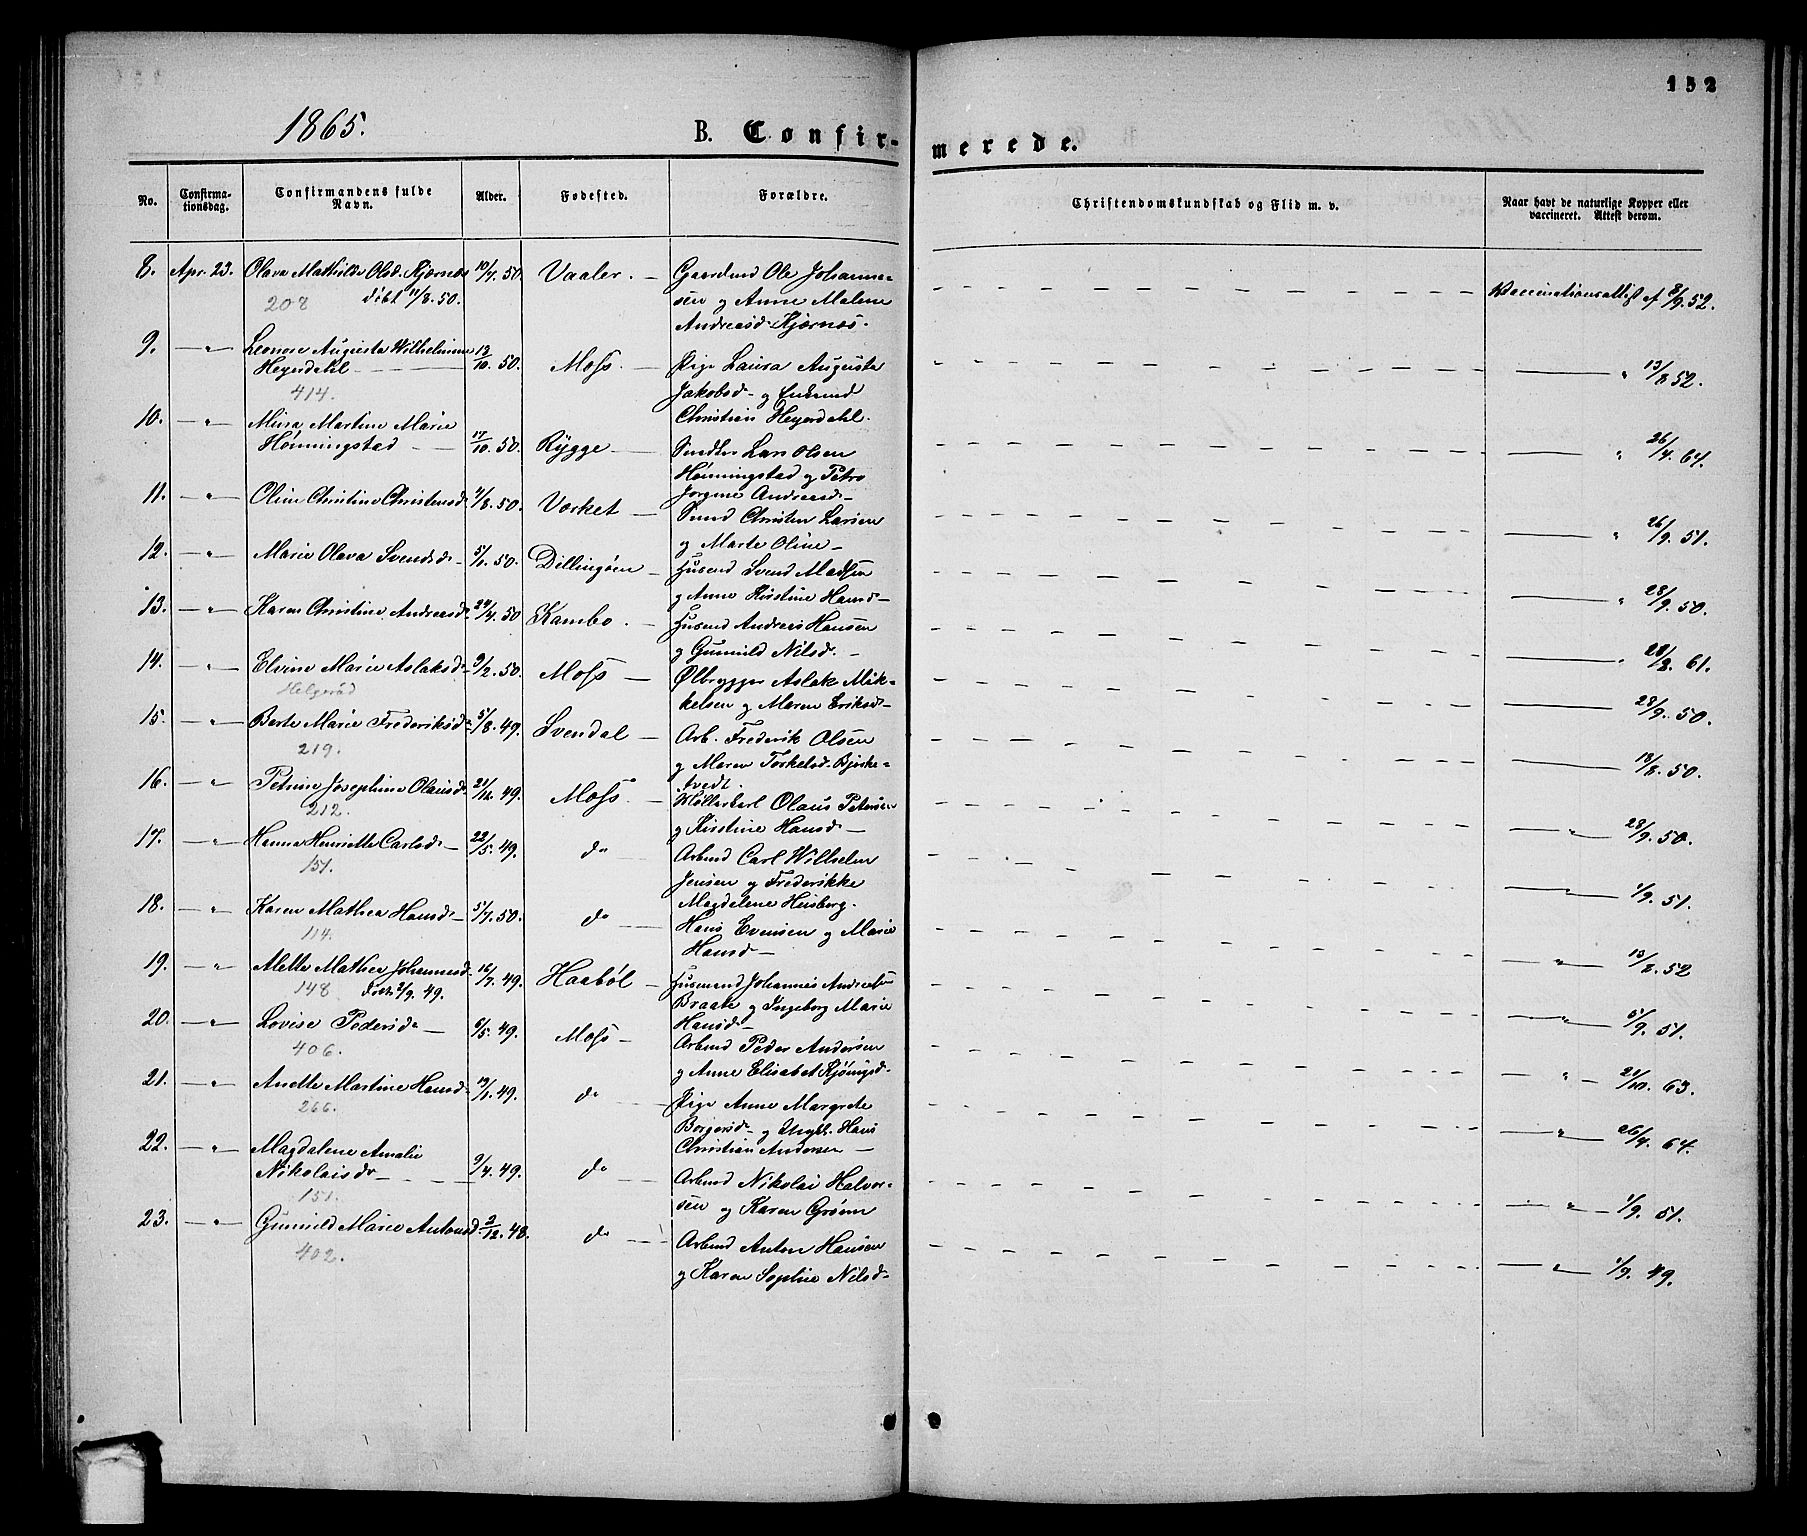 152
1865.
B. Confir-
merede.
No.
Confirma-
tionsdag.
Confirmandens fulde
Navn.
Alder.
Fødested.
Forældre.
Christendomskundskab og Flid m. v.
Naar havt de naturlige Kopper eller
vaccineret. Attest derom.
8. Apr. 23. Olava Mathilde Olsd. Kjærnæs 10/7. 50. Vaaler. — Gaardmd Ole Johanne- Vaccinationsattest af 8/9. 52.
208 døbt 11/8. 50. sen og Anne Malene
Andreasd. Kjærnæs.
9. — " — Leonore Augusta Wilhelmine 12/10. 50. Moss. — Pige Laura Augusta — " 13/8. 52.
Heyerdahl — Jakobsd. og Enkemd
414. Christian Heyerdahl.
10. — " — Mina Martine Marie
Hønningstad — 17/10. 50. Rygge — Smedter Lars Olsen — " 26/4. 64.
Hønningstad og Petra
Jørgine Andreasd. —
11. — " — Oline Christine Christensd. 4/8. 50. Værket — Smed Christen Larsen — " 26/9. 51.
og Marte Oline —
12. — " — Marie Olava Svendsd. — 5/1. 50. Dillingøen — Husmd Svend Madsen — " 28/9. 50.
og Anne Kirstine Hansd. —
13. — " — Karen Christine Andreasd. 24/4. 50 Kambo. — Husmd Andreas Hansen — " 28/8. 61.
og Gunnild Nilsd. —
14. — " — Elvine Marie Aslaksd. 9/2. 50. Moss — Ølbrygger Aslak Mik- 28/9. 50.
Helgerød kelsen og Maren Eriksd. —
15. — " — Berte Marie Frederiksd. 5/8. 49. Svendal — Arb. Frederik Olsen 13/8. 50.
219. og Maren Torkelsd. Bjørke-
tvedt.
16. — " — Petrine Josephine Olausd. 21/12. 49. Moss. — Møllerkarl Olaus Petersen — " — 28/9. 50.
212. og Kirstine Hansd. —
17. — " — Hanna Henriette Carlsd. — 22/5. 49. do — Arbmd Carl Wilhelm — " — 1/9. 51.
151. Jensen og Frederikke
Magdelene Heisberg.
18. — " — Karen Mathea Hansd. — 5/7. 50. do — Hans Evensen og Marie — " — 13/8. 52
114. Hansd. —
19. — " — Alette Mathea Johannesd. 16/7. 49. Haabøl — Husmand Johannes Andreasen — " — 5/9. 51.
148. Født 2/9. 49. Braate og Ingeborg Marie
Hansd. —
20. — " — Lovise Pedersd. — 6/5. 49. Moss — Arbmd Peder Andersen — " — 21/10. 63.
406. og Anne Elisabet Kjønigsd. —
21. — " — Anette Martine Hansd. 19/1. 49. do — Pige Anne Margrete — " — 26/4. 64.
266. Borgersd. — og Ungk. Hans
Christian Andersen —
22. — " — Magdalene Amalie
Nikolaisdr — 9/4. 49. do — Arbmd Nikolai Halvor- — " — 1/9. 51.
151. sen og Karen Grønn
23. — " — Gunnild Marie Antonsd. 3/12. 48. do — Arbmd Anton Hansen — " — 1/9. 49.
402. og Karen Sophie Nilsd. —